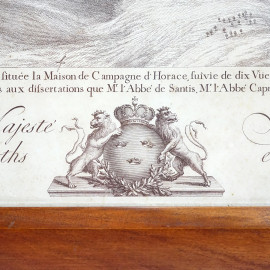 située la Maison de Campagne d'Horace, suivie de dix Vue
aux dissertations que Mr. l'Abbé de Santis, Mr. l'Abbé Capr
ajesté
ths